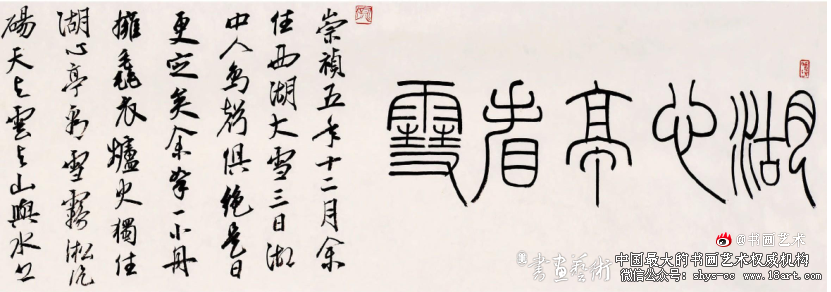 湖心亭看雪
崇禎五年十二月余
住西湖大雪三日湖
中人鳥聲俱絕是日
更定矣余拏一小舟
擁毳衣爐火獨往
湖心亭看雪霧淞沆
碭天与雲与山與水上
@书画艺术
書畫藝術
中国最大的书画艺术权威机构
微信公众号: shys-cc www.18art.com